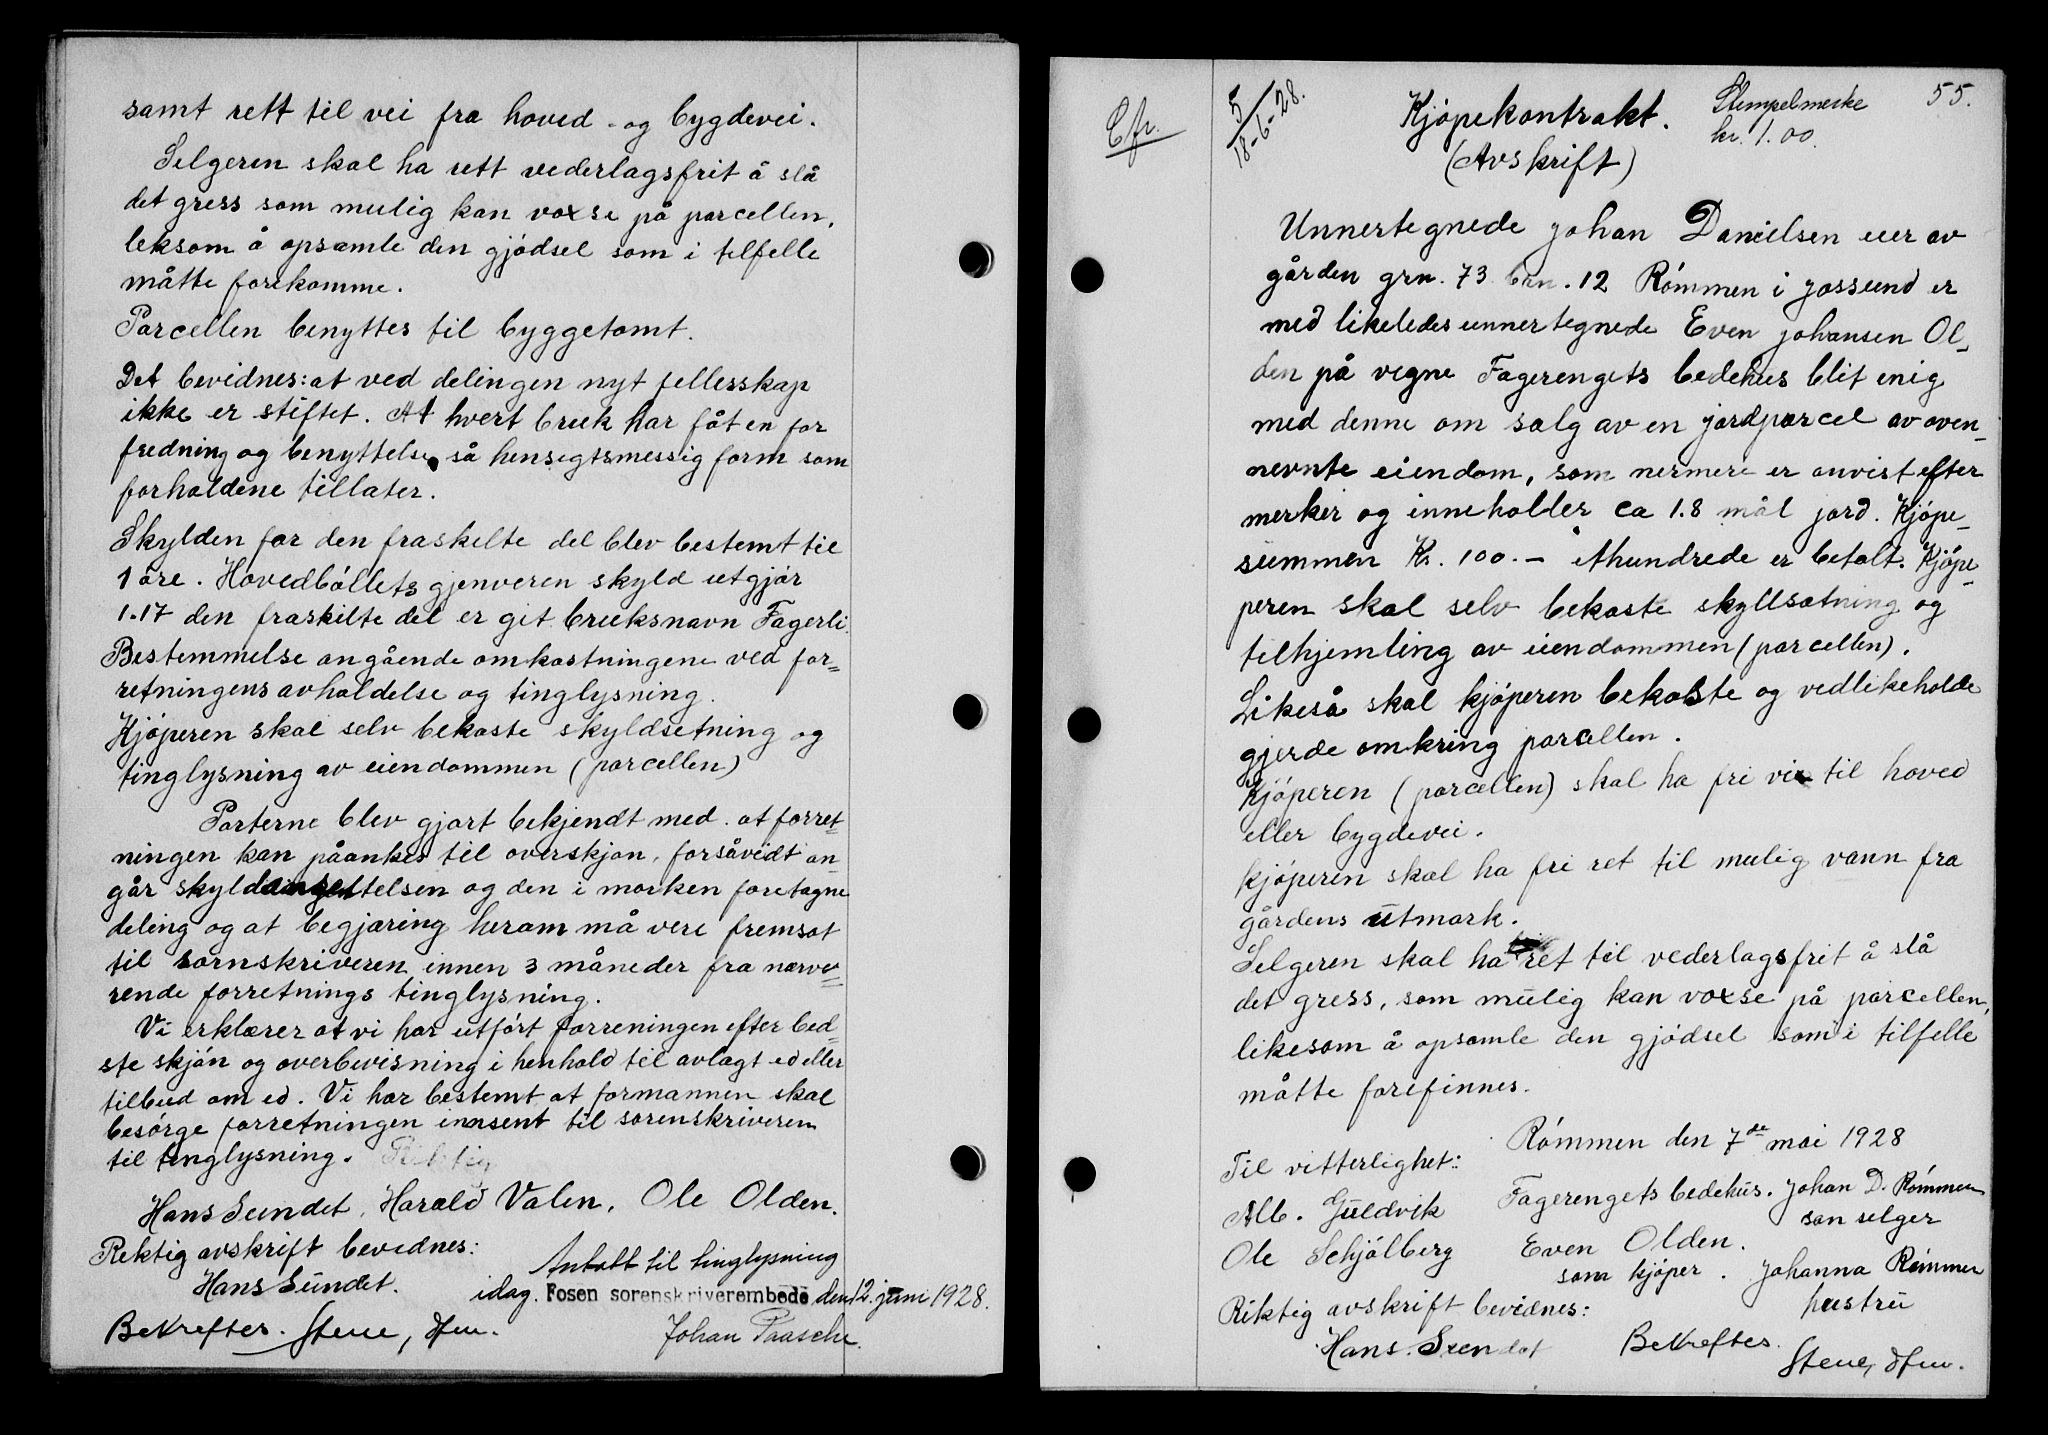 samt rett til vei fra hoved- og bygdevei.
Selgeren skal ha rett vederlagsfrit å slå
det gress som mulig kan vokse på parcellen,
leksom å opsamle den gjødsel som i tilfelle
måtte forekomme.
Parcellen benyttes til byggetomt.
Det bevidnes: at ved delingen nyt fellesskap
ikke er stiftet. At hvert bruk har fåt en for
fredning og benyttelse så hensigtsmessig form som
forholdene tillater.
Skylden for den fraskilte del blev bestemt til
1 øre. Hovedbøllets gjenveren skyld utgjør
1.17 den fraskilte del er git bruksnavn Fagerli.
Bestemmelse angående omkostningene ved for=
retningens avholdelse og tinglysning.
Kjøperen skal selv bekoste skyldsetning og
tinglysning av eiendommen (parcellen)
Parterne blev gjort bekjendt med at forret=
ningen kan påankes til overskjøn, forsåvidt an=
går skyldansettelsen og den i marken foretagne
deling og at begjæring herom må vere fremsat
til sornskriveren innen 3 måneder fra nærve=
rende forretnings tinglysning.
Vi erklærer at vi har utført forreningen efter bed=
ste skjøn og overbevisning i henhold til avlagt ed eller
tilbud om ed. Vi har bestemt at formannen skal
besørge forretningen innsent til sorenskriveren
til tinglysning. Riktig
Hans Sundet, Harald Valen, Ole Olden.
Rektig avskrift bevidnes:
Hans Sundet.
Antatt til tinglysning
idag. Fosen sorenskriverembede den 12. juni 1928.
Bekreftes. Stene, dfm.
Johan Paasche.
55.
Cfr.
5/18-6-28.
Kjøpekontrakt.
(Avskrift)
Stempelmerke
kr. 1.00.
Unnertegnede Johan Danielsen eier av
gården grn. 73 brn. 12 Rømmen i Jøssund er
med likeledes unnertegnede Even Johansen Ol=
den på vegne Fagerengets bedehus blit enig
med denne om salg av en jordparcel av oven=
nevnte eiendom, som nermere er anvist efter
merker og inneholder ca 1.8 mål jord. Kjøpe=
summen Kr. 100.- ethundrede er betalt. Kjøpe=
peren skal selv bekoste skyllsætning og
tilhjemling av eiendommen (parcellen).
Likeså skal kjøperen bekoste og vedlikeholde
gjerde omkring parcellen.
Kjøperen (parcellen) skal ha fri vei til hoved
eller bygdevei.
kjøperen skal ha fri ret til mulig vann fra
gårdens utmark.
Selgeren skal ha ret til vederlagsfrit å slå
det gress, som mulig kan vokse på parcellen,
likesom å opsamle den gjødsel som i tilfelle
måtte forefinnes.
Rømmen den 7de mai 1928
Til vitterlighet:
Alb. Guldvik
Ole Schjølberg
Fagerengets bedehus. Johan D. Rømmen
son selger
Even Olden.
som kjøper. Johanna Rømmen
hustru
Riktig avskrift bevidnes:
Hans Sundet
Bekreftes.
Stene, dfm.